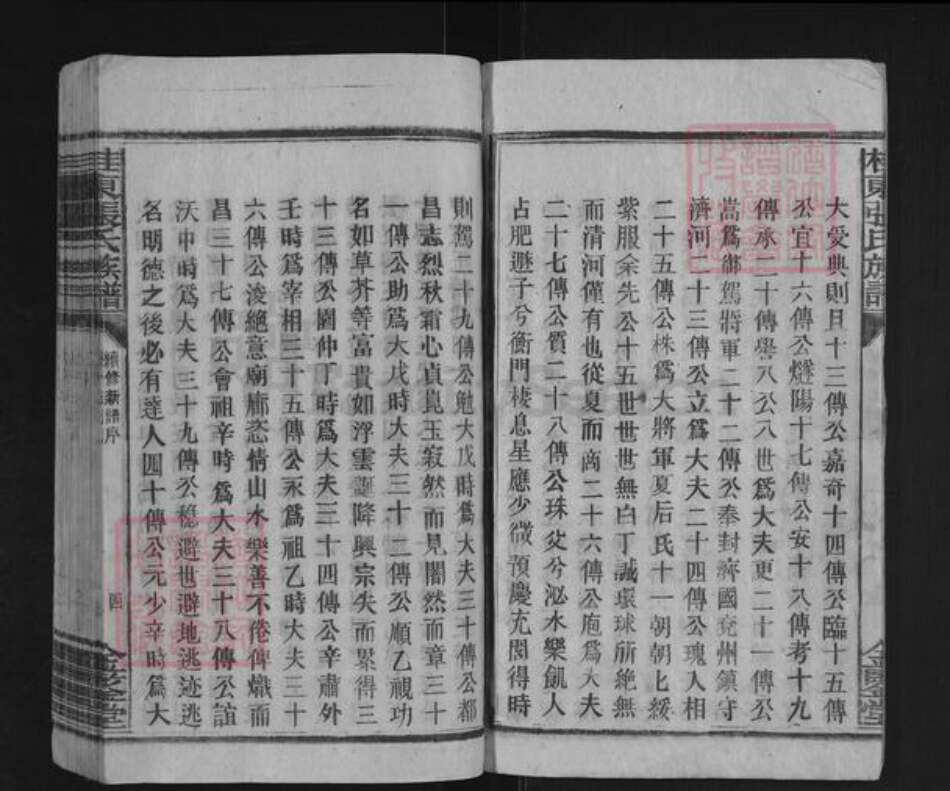 桂東張氏族譜
大受典則且十三傳公嘉奇十四傳公臨十五傳
公宜十六傳公燧陽十七傳公安十八傳考十九
傳承二十傳譽八公八世爲大夫更二十一傳公
嵩爲御駕將軍二十二傳公奉封濟國兗州鎮守
濟河二十三傳公立爲大夫二十四傳公瑰入相
二十五傳公株爲大將軍夏后氏十一朝朝匕綬
紫服朱先公十五世世世無白丁誠環球所絶無
而清河僅有也從夏而商二十六傳公庖爲大夫
二十七傳公質二十八傳公珠爻兮泌水樂飢人
占肥遯子兮衡門棲息星應少微預慶充閭得時
則駕二十九傳公勉大戊時爲大夫三十傳公都
昌志烈秋霜心貞崑玉寂然而見闇然而章三十
一傳公助爲大戊時大夫三十二傳公順乙視功
名如草芥等富貴如浮雲誕降興宗失而累得三
十三傳公圓仲丁時爲大夫三十四傳公辛肅外
壬時爲宰相三十五傳公永爲祖乙時大夫三十
六傳公浚絶意廟廊恣情山水樂善不倦俾熾而
昌三十七傳公會祖辛時爲大夫三十八傳公誼
沃甲時爲大夫三十九傳公穩避世避地逃迹逃
名明德之後必有達人四十傳公元少辛時爲大
桂東張氏族譜
續修新譜序
四